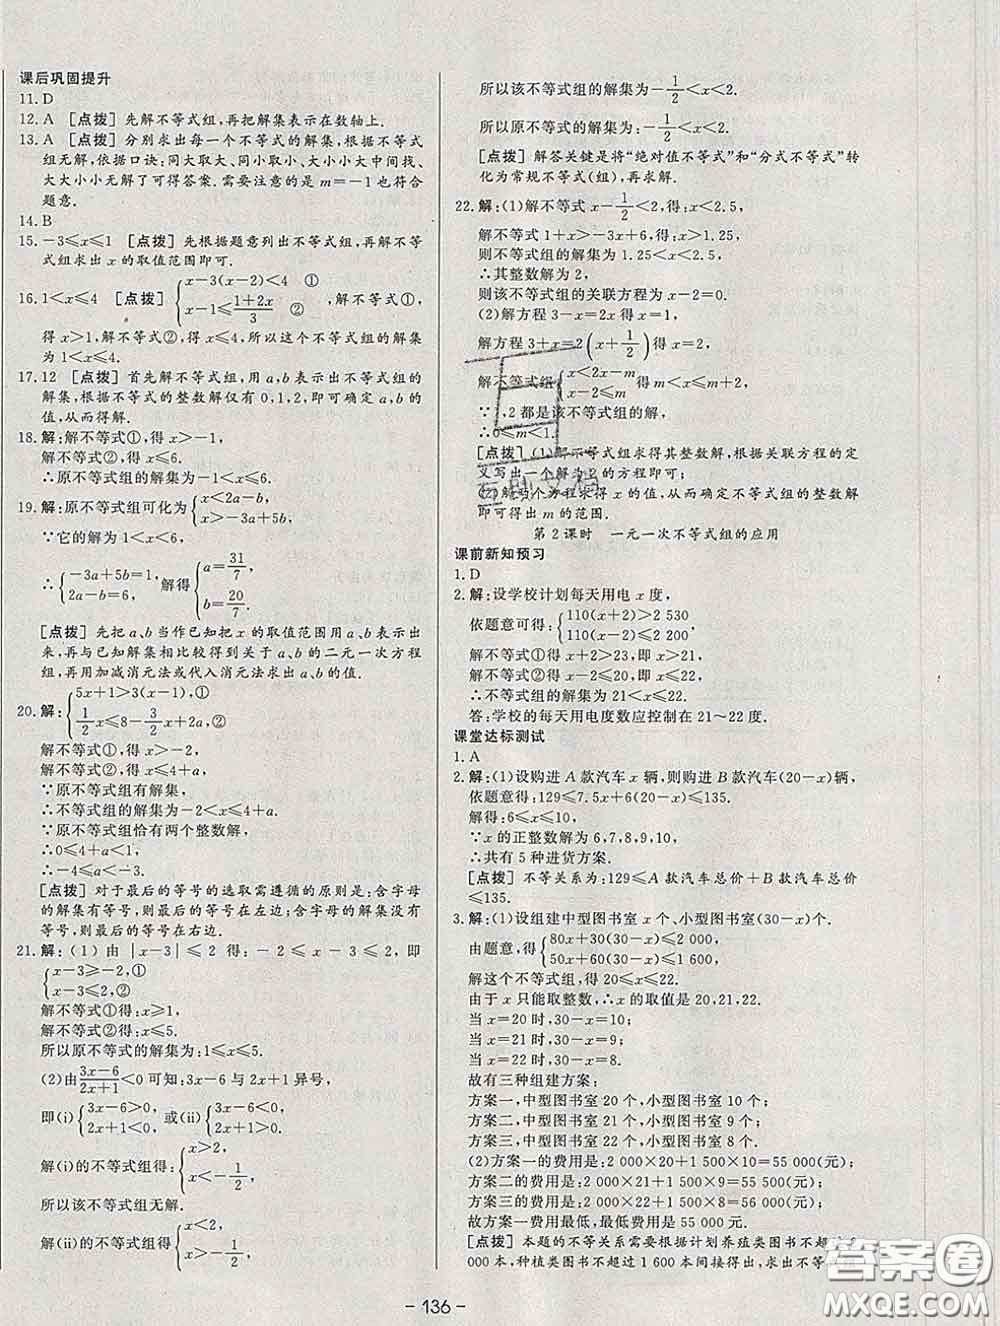 课后巩固提升
11. D
12. A [点拨] 先解不等式组,再把解集表示在数轴上.
13. A [点拨] 分别求出每一个不等式的解集,根据不等式
组无解,依据口诀:同大取大、同小取小、大小小大中间找、
大大小小无解了可得答案.需要注意的是 m=-1 也符合
题意.
14. B
15. -3≤x≤1 [点拨] 先根据题意列出不等式组,再解不等
式组求出 x 的取值范围即可.
16. 1<x≤4 [点拨] {x-3(x-2)<4 ① x-1≤(1+2x)/3 ②,解不等式①,
得 x>1,解不等式②,得 x≤4,所以这个不等式组的解集
为 1<x≤4.
17. 12 [点拨] 首先解不等式组,用 a,b 表示出不等式组的
解集,根据不等式的整数解仅有 0,1,2,即可确定 a,b 的
值,从而得解.
18. 解:解不等式①,得 x>-1,
解不等式②,得 x≤6.
∴原不等式组的解集为 -1<x≤6.
19. 解:原不等式组可化为{x<2a-b, x>-3a+5b,
∵它的解为 1<x<6,
∴{-3a+5b=1, 2a-b=6, 解得{a=31/7, b=20/7.
[点拨] 先把 a、b 当作已知把 x 的取值范围用 a、b 表示出
来,再与已知解集相比较得到关于 a、b 的二元一次方程
组,再用加减消元法或代入消元法求出 a、b 的值.
20. 解:{5x+1>3(x-1),① 1/2x≤8-3/2x+2a,②
解不等式①,得 x>-2,
解不等式②,得 x≤4+a,
∵原不等式组有解,
∴不等式组的解集为 -2<x≤4+a.
∵原不等式组恰有两个整数解,
∴0≤4+a<1,
∴-4≤a<-3.
[点拨] 对于最后的等号的选取需遵循的原则是:含字母
的解集有等号,则最后的等号在左边;含字母的解集没有
等号,则最后的等号在右边.
21. 解:(1)由 |x-3|≤2 得:-2≤x-3≤2,即
{x-3≥-2,① x-3≤2,②
解不等式①得:x≥1,
解不等式②得:x≤5.
所以原不等式的解集为:1≤x≤5.
(2)由(3x-6)/(2x+1)<0 可知:3x-6 与 2x+1 异号,
即(i){3x-6>0, 2x+1<0, 或(ii){3x-6<0, 2x+1>0.
解(i)的不等式组得:{x>2, x<-1/2,
所以该不等式组无解.
解(ii)的不等式组得{x<2, x>-1/2,
所以该不等式组的解集为-1/2<x<2.
所以原不等式的解集为:-1/2<x<2.
[点拨] 解答关键是将“绝对值不等式”和“分式不等式”转
化为常规不等式(组),再求解.
22. 解:(1)解不等式 x-1/2<2,得:x<2.5,
解不等式 1+x>-3x+6,得:x>1.25,
则不等式组的解集为 1.25<x<2.5,
∴其整数解为 2,
则该不等式组的关联方程为 x-2=0.
(2)解方程 3-x=2x 得 x=1,
解方程 3+x=2(x+1/2)得 x=2,
解不等式组{x<2x-m x-2≤m 得 m<x≤m+2,
∵ ,2 都是该不等式组的解,
∴0≤m<1.
[点拨] (1)解不等式组求得其整数解,根据关联方程的定
义写出一个解为 2 的方程即可;
(2)解两个方程求得 x 的值,从而确定不等式组的整数解
即可得出 m 的范围.
第 2 课时 一元一次不等式组的应用
课前新知预习
1. D
2. 解:设学校计划每天用电 x 度,
依题意可得:{110(x+2)>2 530 110(x-2)≤2 200,
解不等式①得 x+2>23,即 x>21,
解不等式②得 x-2≤20,即 x≤22.
∴不等式组的解集为 21<x≤22.
答:学校的每天用电度数应控制在 21~22 度.
课堂达标测试
1. A
2. 解:(1)设购进 A 款汽车 x 辆,则购进 B 款汽车(20-x)辆,
依题意得:129≤7.5x+6(20-x)≤135.
解得:6≤x≤10,
∵x 的正整数解为 6,7,8,9,10,
∴共有 5 种进货方案.
[点拨] 不等关系为:129≤A 款汽车总价+B 款汽车总价
≤135.
3. 解:(1)设组建中型图书室 x 个、小型图书室(30-x)个.
由题意,得{80x+30(30-x)≤2 000 50x+60(30-x)≤1 600,
解这个不等式组,得 20≤x≤22.
由于 x 只能取整数,∴x 的取值是 20,21,22.
当 x=20 时,30-x=10;
当 x=21 时,30-x=9;
当 x=22 时,30-x=8.
故有三种组建方案:
方案一,中型图书室 20 个,小型图书室 10 个;
方案二,中型图书室 21 个,小型图书室 9 个;
方案三,中型图书室 22 个,小型图书室 8 个.
(2)方案一的费用是:2 000×20+1 500×10=55 000(元);
方案二的费用是:2 000×21+1 500×9=55 500(元);
方案三的费用是:2 000×22+1 500×8=56 000(元);
故方案一费用最低,最低费用是 55 000 元.
[点拨] 本题的不等关系需要根据计划养殖类图书不超过 2
000 本,种植类图书不超过 1 600 本间接得出,求出不等式
- 136 -
答案圈
MXQE.COM